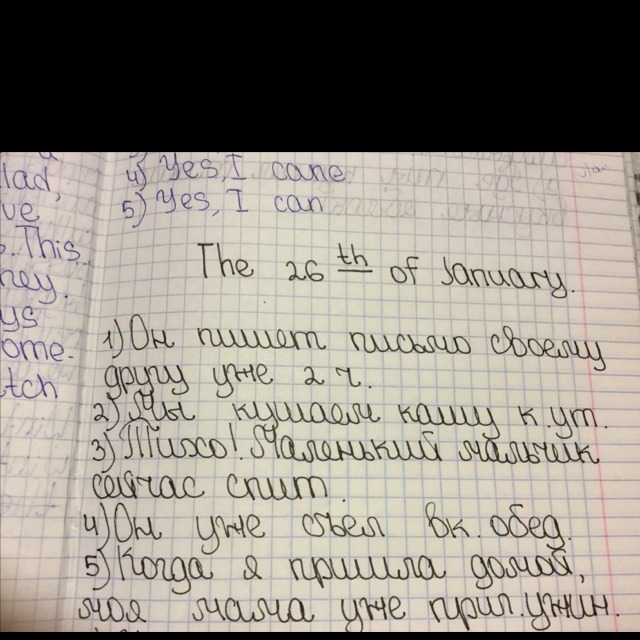 lad,
4) Yes, I cane
ve
5) Yes, I can
s. This
The 26 th of January.
ney.
ys
1) Он пишет письмо своему
ome-
другу уже 2 ч.
tch
2) Мы кушаем кашу к. ут.
3) Тихо! Маленький мальчик
сейчас спит.
4) Он уже съел вк. обед.
5) Когда я пришла домой,
моя мама уже приг. ужин.